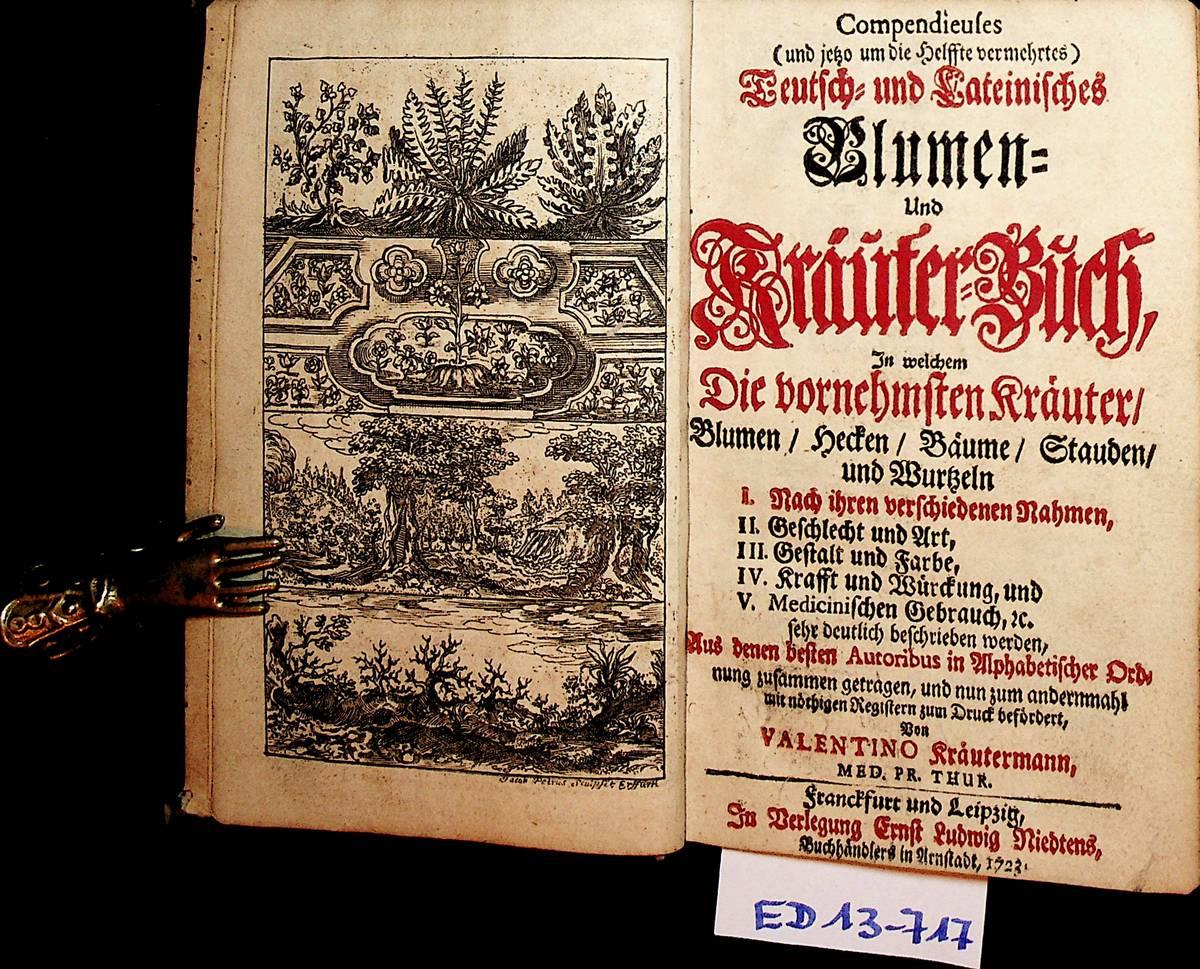 Compendieuses
(und jetzo um die Helffte vermehrtes)
Teutsch- und Lateinisches
Blumen-
Und
Kräuter-Buch,
In welchem
Die vornehmsten Kräuter/
Blumen / Hecken / Bäume / Stauden/
und Wurtzeln
I. Nach ihren verschiedenen Nahmen,
II. Geschlecht und Art,
III. Gestalt und Farbe,
IV. Krafft und Würckung, und
V. Medicinischen Gebrauch, ꝛc.
sehr deutlich beschrieben werden,
Aus denen besten Autoribus in Alphabetischer Ord-
nung zusammen getragen, und nun zum andernmahl
mit nöthigen Registern zum Druck befördert,
Von
VALENTINO Kräutermann,
MED. PR. THUR.
Franckfurt und Leipzig,
In Verlegung Ernst Ludwig Niedtens,
Buchhändlers in Arnstadt, 1723.
Jacob Petrus sculpsit Erffurth
ED 13-717